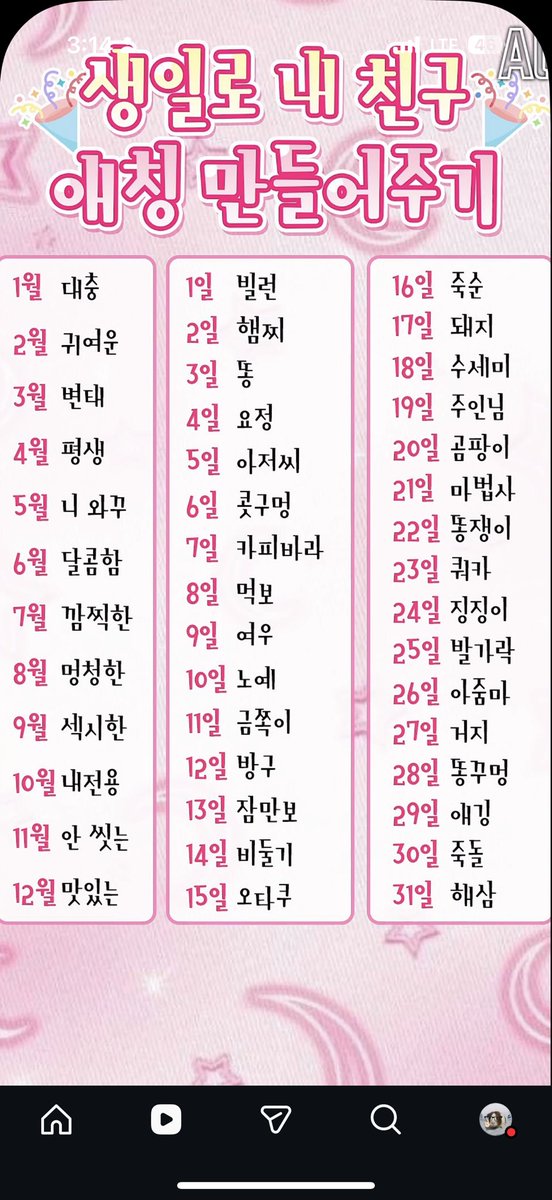 3:14
LTE 46
생일로 내 친구
애칭 만들어주기
1월 대충
2월 귀여운
3월 변태
4월 평생
5월 니 와꾸
6월 달콤함
7월 깜찍한
8월 멍청한
9월 섹시한
10월 내전용
11월 안 씻는
12월 맛있는
1일 빌런
2일 햄찌
3일 똥
4일 요정
5일 아저씨
6일 콧구멍
7일 카피바라
8일 먹보
9일 여우
10일 노예
11일 금쪽이
12일 방구
13일 잠만보
14일 비둘기
15일 오타쿠
16일 죽순
17일 돼지
18일 수세미
19일 주인님
20일 곰팡이
21일 마법사
22일 똥쟁이
23일 쿼카
24일 징징이
25일 발가락
26일 아줌마
27일 거지
28일 똥꾸멍
29일 애깅
30일 죽돌
31일 해삼